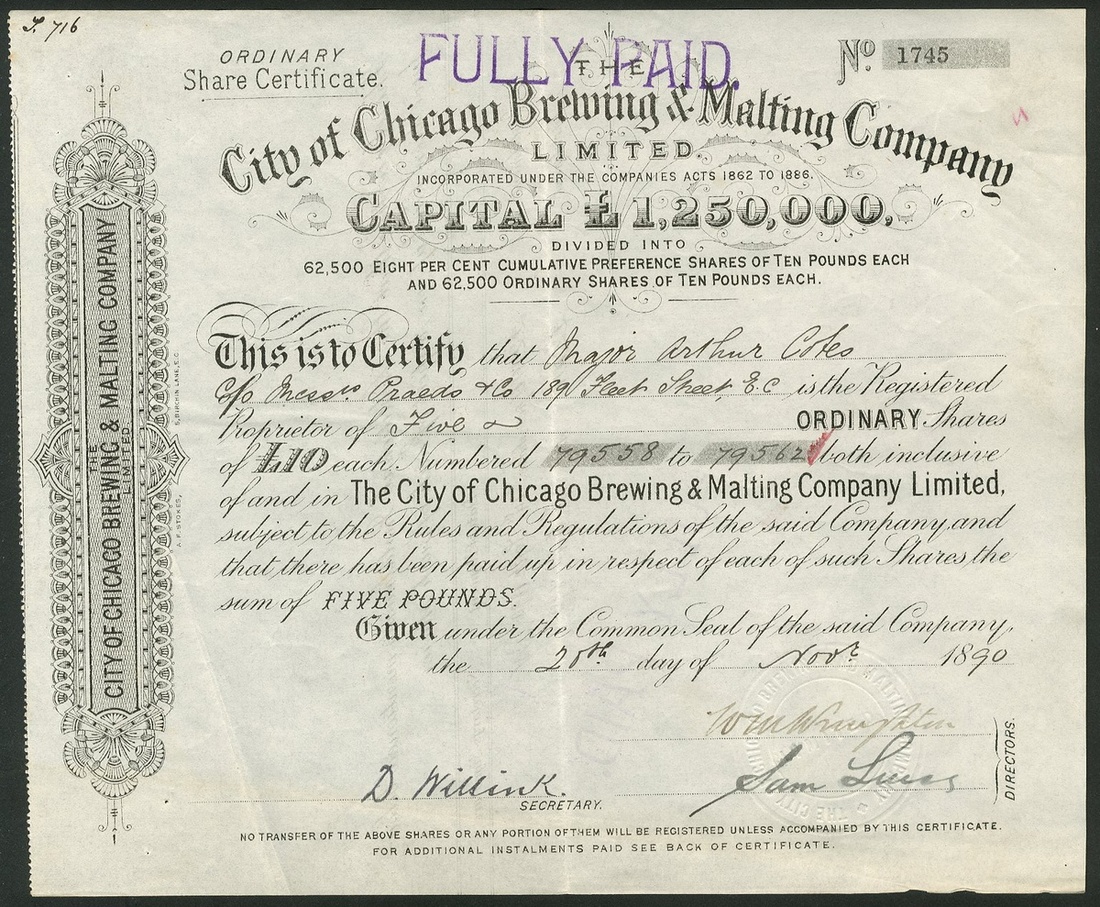 T. 716
ORDINARY
Share Certificate.
FULLY PAID.
No. 1745
THE
City of Chicago Brewing & Malting Company
LIMITED.
INCORPORATED UNDER THE COMPANIES ACTS 1862 TO 1886.
CAPITAL £1,250,000,
DIVIDED INTO
62,500 EIGHT PER CENT CUMULATIVE PREFERENCE SHARES OF TEN POUNDS EACH
AND 62,500 ORDINARY SHARES OF TEN POUNDS EACH.
This is to Certify that Major Arthur Cotes
c/o Messrs Praeds & Co 189 Fleet Street, E.C is the Registered
Proprietor of Five ORDINARY Shares
of £10 each Numbered 79558 to 79562 both inclusive
of and in The City of Chicago Brewing & Malting Company Limited,
subject to the Rules and Regulations of the said Company, and
that there has been paid up in respect of each of such Shares the
sum of FIVE POUNDS.
Given under the Common Seal of the said Company,
the 20th day of Novr 1890
D. Willink.
SECRETARY.
Sam
DIRECTORS.
NO TRANSFER OF THE ABOVE SHARES OR ANY PORTION OF THEM WILL BE REGISTERED UNLESS ACCOMPANIED BY THIS CERTIFICATE.
FOR ADDITIONAL INSTALMENTS PAID SEE BACK OF CERTIFICATE.
THE
CITY OF CHICAGO BREWING & MALTING COMPANY
LIMITED
A. F. STOKES, 5, BIRCHIN LANE, E.C.